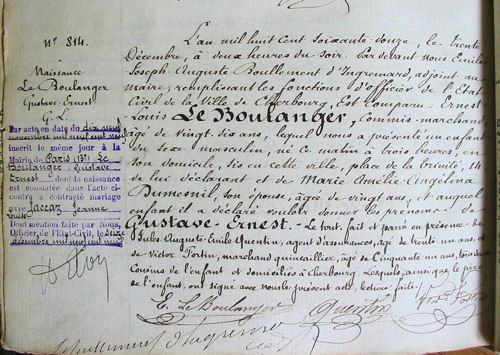 N° 814.
Naissance
Le Boulanger
Gustave Ernest
G. L.
Par acte en date du dix neuf
novembre mil neuf cent neuf
inscrit le même jour à la
Mairie de Paris (18e) Le
Boulanger Gustave
Ernest dont la naissance
est constatée dans l'acte ci-
contre a contracté mariage
avec Jaccaz Jeanne
Dont mention faite par Nous,
Officier de l'Etat-Civil, le
décembre mil neuf cent neuf
L'an mil huit cent soixante-douze, le trente
Décembre, à deux heures du soir. Par devant nous Emile
Joseph Auguste Boullement d'Ingremard, adjoint au
maire, remplissant les fonctions d'officier de l'Etat
Civil de la Ville de Cherbourg, Est comparu : Ernest
Louis Le Boulanger, Commis-marchand,
âgé de vingt-six ans, lequel nous a présenté un enfant
du sexe masculin, né ce matin à trois heures, en
son domicile, sis en cette ville, place de la trinité, 14
de lui déclarant et de Marie Amélie Angélina
Dumesnil, son épouse, âgée de vingt ans, et auquel
enfant il a déclaré vouloir donner les prénoms de
Gustave-Ernest. Le tout fait et passé en présence de
Jules Auguste Emile Quentin, agent d'assurances, âgé de trente un ans, et
de Victor Postin, marchand quincaillier, âgé de Cinquante un ans, tous deux
Cousins de l'enfant et domiciliés à Cherbourg. Lesquels, ainsi que le père
de l'enfant, ont signé avec nous le présent acte, lecture faite.
E. Le Boulanger Quentin